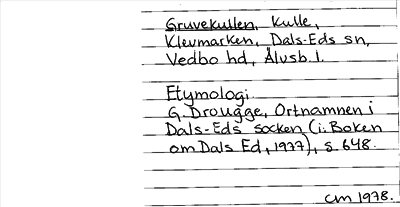 Gruvekullen, Kulle,
Klevmarken, Dals-Eds sn,
Vedbo hd, Älvsb. l.
Etymologi
G. Drougge, Ortnamnen i
Dals-Eds socken (i: Boken
om Dals Ed, 1977), s 648.
CM 1978.